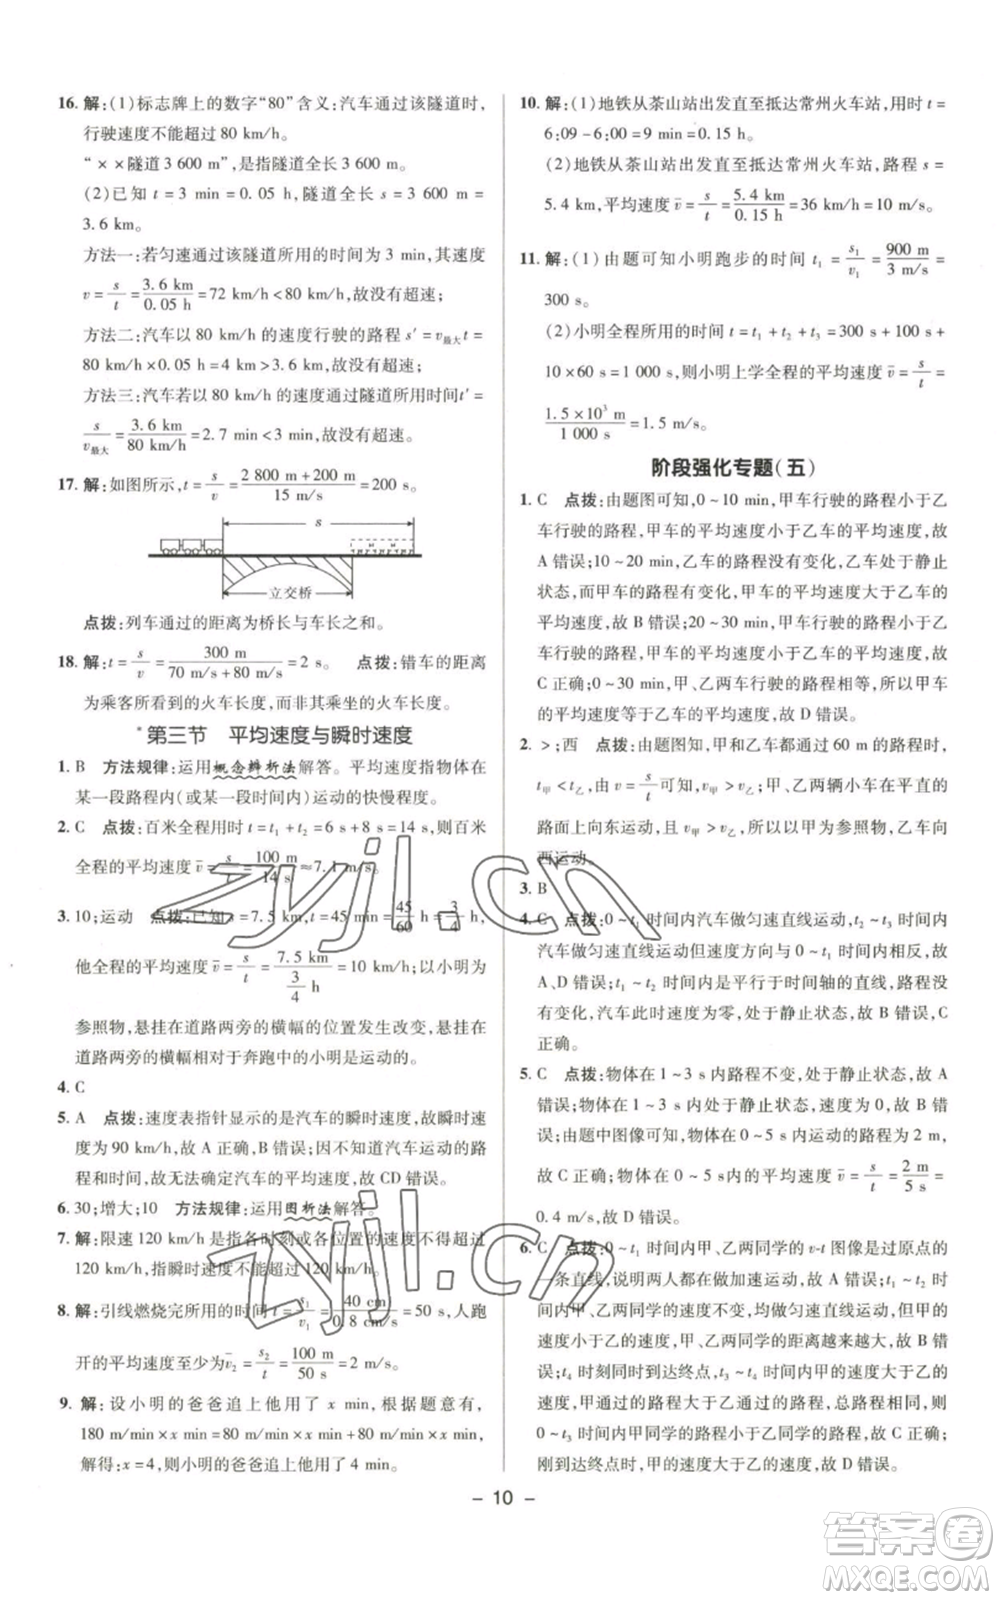 16. 解:(1)标志牌上的数字“80”含义:汽车通过该隧道时,
行驶速度不能超过 80 km/h。
“××隧道 3 600 m”,是指隧道全长 3 600 m。
(2)已知 t = 3 min = 0. 05 h,隧道全长 s = 3 600 m =
3. 6 km。
方法一:若匀速通过该隧道所用的时间为 3 min,速度
v = s/t = 3. 6 km/0. 05 h = 72 km/h < 80 km/h,故没有超速;
方法二:汽车以 80 km/h 的速度行驶的路程 s′ = v最大t =
80 km/h × 0. 05 h = 4 km > 3. 6 km,故没有超速;
方法三:汽车若以 80 km/h 的速度行驶,用时间t′ =
s/v最大 = 3. 6 km/80 km/h = 2. 7 min < 3 min,故没有超速。
17. 解:如图所示,t = s/v = 2 800 m + 200 m/15 m/s = 200 s。
s
立交桥
点拨:列车通过的距离为桥长与车长之和。
18. 解:t = s/v = 300 m/70 m/s + 80 m/s = 2 s。 点拨:错车的距离
为乘客所看到的火车长度,而非其乘坐的火车长度。
*第三节 平均速度与瞬时速度
1. B 方法规律:运用概念辨析法解答。平均速度指物体在
某一段路程内(或某一段时间内)运动的快慢程度。
2. C 点拨:百米全程用时 t = t1 + t2 = 6 s + 8 s = 14 s,则百米
全程的平均速度 v̄ = s/t = 100 m/14 s ≈ 7. 1 m/s。
3. 10;运动 点拨:已知 s = 7. 5 km,t = 45 min = 45/60 h = 3/4 h,
他全程的平均速度 v̄ = s/t = 7. 5 km/(3/4 h) = 10 km/h;以小明为
参照物,悬挂在道路两旁的横幅的位置发生改变,悬挂在
道路两旁的横幅相对于奔跑中的小明是运动的。
4. C
5. A 点拨:速度表指针显示的是汽车的瞬时速度,故瞬时速
度为 90 km/h,故 A 正确,B 错误;因不知道汽车运动的路
程和时间,故无法确定汽车的平均速度,故 CD 错误。
6. 30;增大;10 方法规律:运用图析法解答。
7. 解:限速 120 km/h 是指各时刻或各位置的速度不能超过
120 km/h,指瞬时速度不能超过 120 km/h。
8. 解:引线燃烧完所用的时间 t = s1/v1 = 40 cm/0. 8 cm/s = 50 s,人跑
开的平均速度至少为 v̄2 = s2/t = 100 m/50 s = 2 m/s。
9. 解:设小明的爸爸追上他用了 x min,根据题意有,
180 m/min × x min = 80 m/min × x min + 80 m/min × 5 min,
解得:x = 4,则小明的爸爸追上他用了 4 min。
10. 解:(1)地铁从茶山站出发直至抵达常州火车站,用时 t =
6:09 - 6:00 = 9 min = 0. 15 h。
(2)地铁从茶山站出发直至抵达常州火车站,路程 s =
5. 4 km,平均速度 v̄ = s/t = 5. 4 km/0. 15 h = 36 km/h = 10 m/s。
11. 解:(1)由题可知小明跑步的时间 t1 = s1/v1 = 900 m/3 m/s =
300 s。
(2)小明全程所用的时间 t = t1 + t2 + t3 = 300 s + 100 s +
10 × 60 s = 1 000 s,则小明上学全程的平均速度 v̄ = s/t =
1. 5 × 10³ m/1 000 s = 1. 5 m/s。
阶段强化专题(五)
1. C 点拨:由题图可知,0 ~ 10 min,甲车行驶的路程小于乙
车行驶的路程,甲车的平均速度小于乙车的平均速度,故
A 错误;10 ~ 20 min,乙车的路程没有变化,乙车处于静止
状态,甲车的路程有变化,甲车的平均速度大于乙车的
平均速度,故 B 错误;20 ~ 30 min,甲车行驶的路程小于乙
车行驶的路程,甲车的平均速度小于乙车的平均速度,故
C 正确;0 ~ 30 min,甲、乙两车行驶的路程相等,所以甲车
的平均速度等于乙车的平均速度,故 D 错误。
2. >;西 点拨:由题图知,甲和乙车都通过 60 m 的路程时,
t甲 < t乙,由 v = s/t 可知,v甲 > v乙;甲、乙两辆小车在平直的
路面上向东运动,且 v甲 > v乙,以甲车为参照物,乙车向
西运动。
3. B
4. C 点拨:0 ~ t1 时间内汽车做匀速直线运动,t2 ~ t3 时间内
汽车做匀速直线运动但速度方向与 0 ~ t1 时间内相反,故
A、D 错误;t1 ~ t2 时间内是平行于时间轴的直线,路程没有
变化,汽车此时速度为零,处于静止状态,故 B 错误,C
正确。
5. C 点拨:物体在 1 ~ 3 s 内路程不变,处于静止状态,故 A
错误;物体在 1 ~ 3 s 内路程不变,处于静止状态,故 B 错
误;由题中图像可知,物体在 0 ~ 5 s 内运动的路程为 2 m,
故 C 正确;物体在 0 ~ 5 s内的平均速度 v̄ = s/t = 2 m/5 s =
0. 4 m/s,故 D 错误。
6. C 点拨:0 ~ t1 时间内甲、乙两同学的 v-t 图像是过原点的
一条直线,说明两同学都在做加速运动,故 A 错误;t1 ~ t2
时间内,甲、乙两同学的速度不变,均做匀速运动,但甲的
速度小于乙的速度,甲、乙两同学的距离越来越大,故 B 错
误;t4 时刻同时到达终点,t3 ~ t4 时间内甲的速度大于乙的
速度,甲的路程大于乙的路程,总路程相等,所以
0 ~ t3 时间内甲同学的路程小于乙同学的路程,故 C 正确;
刚到达终点时,甲的速度大于乙的速度,故 D 错误。
- 10 -
zyjl.cn
zyjl.cn
答案圈
MXQE.COM